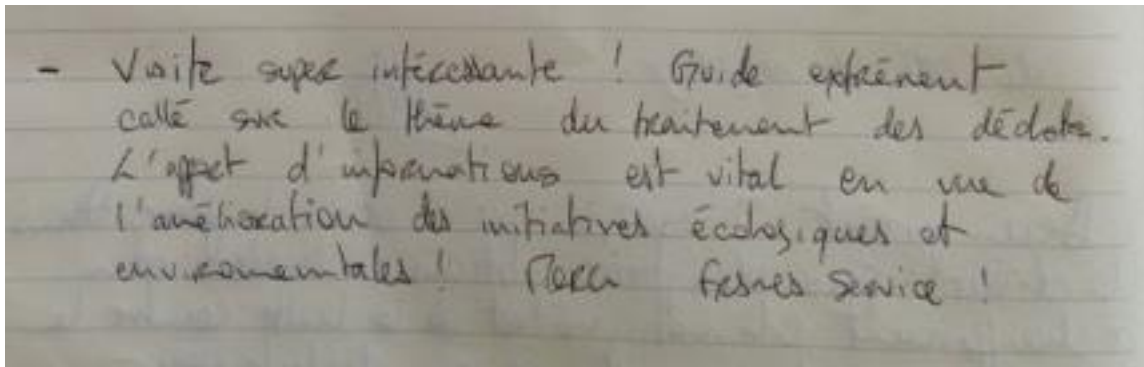 - Visite super intéressante ! Guide extrêment
callé sur le thème du traitement des déchets.
L'appet d'informations est vital en vue de
l'amélioration des initiatives écologiques et
environementales ! Merci Service !